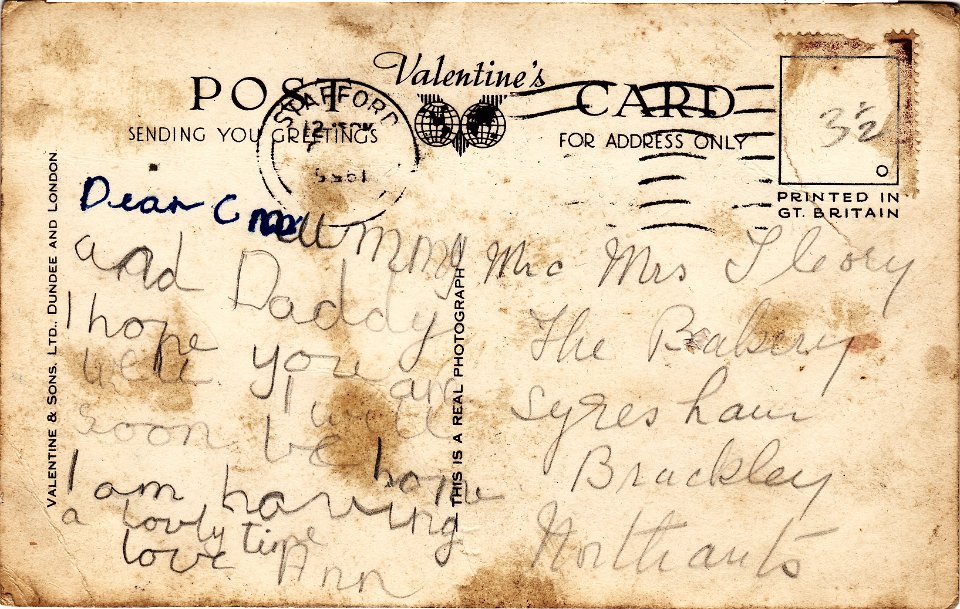 Valentine's
POST CARD
SENDING YOU GREETINGS
FOR ADDRESS ONLY
STAFFORD
12
3½
PRINTED IN
GT. BRITAIN
VALENTINE & SONS, LTD. DUNDEE AND LONDON.
THIS IS A REAL PHOTOGRAPH
Dear Mummy
and Daddy
I hope you are
well I will
soon be home
I am having
a lovly time
love Ann
Mrs
The Bakery
Syresham
Brackley
Northants